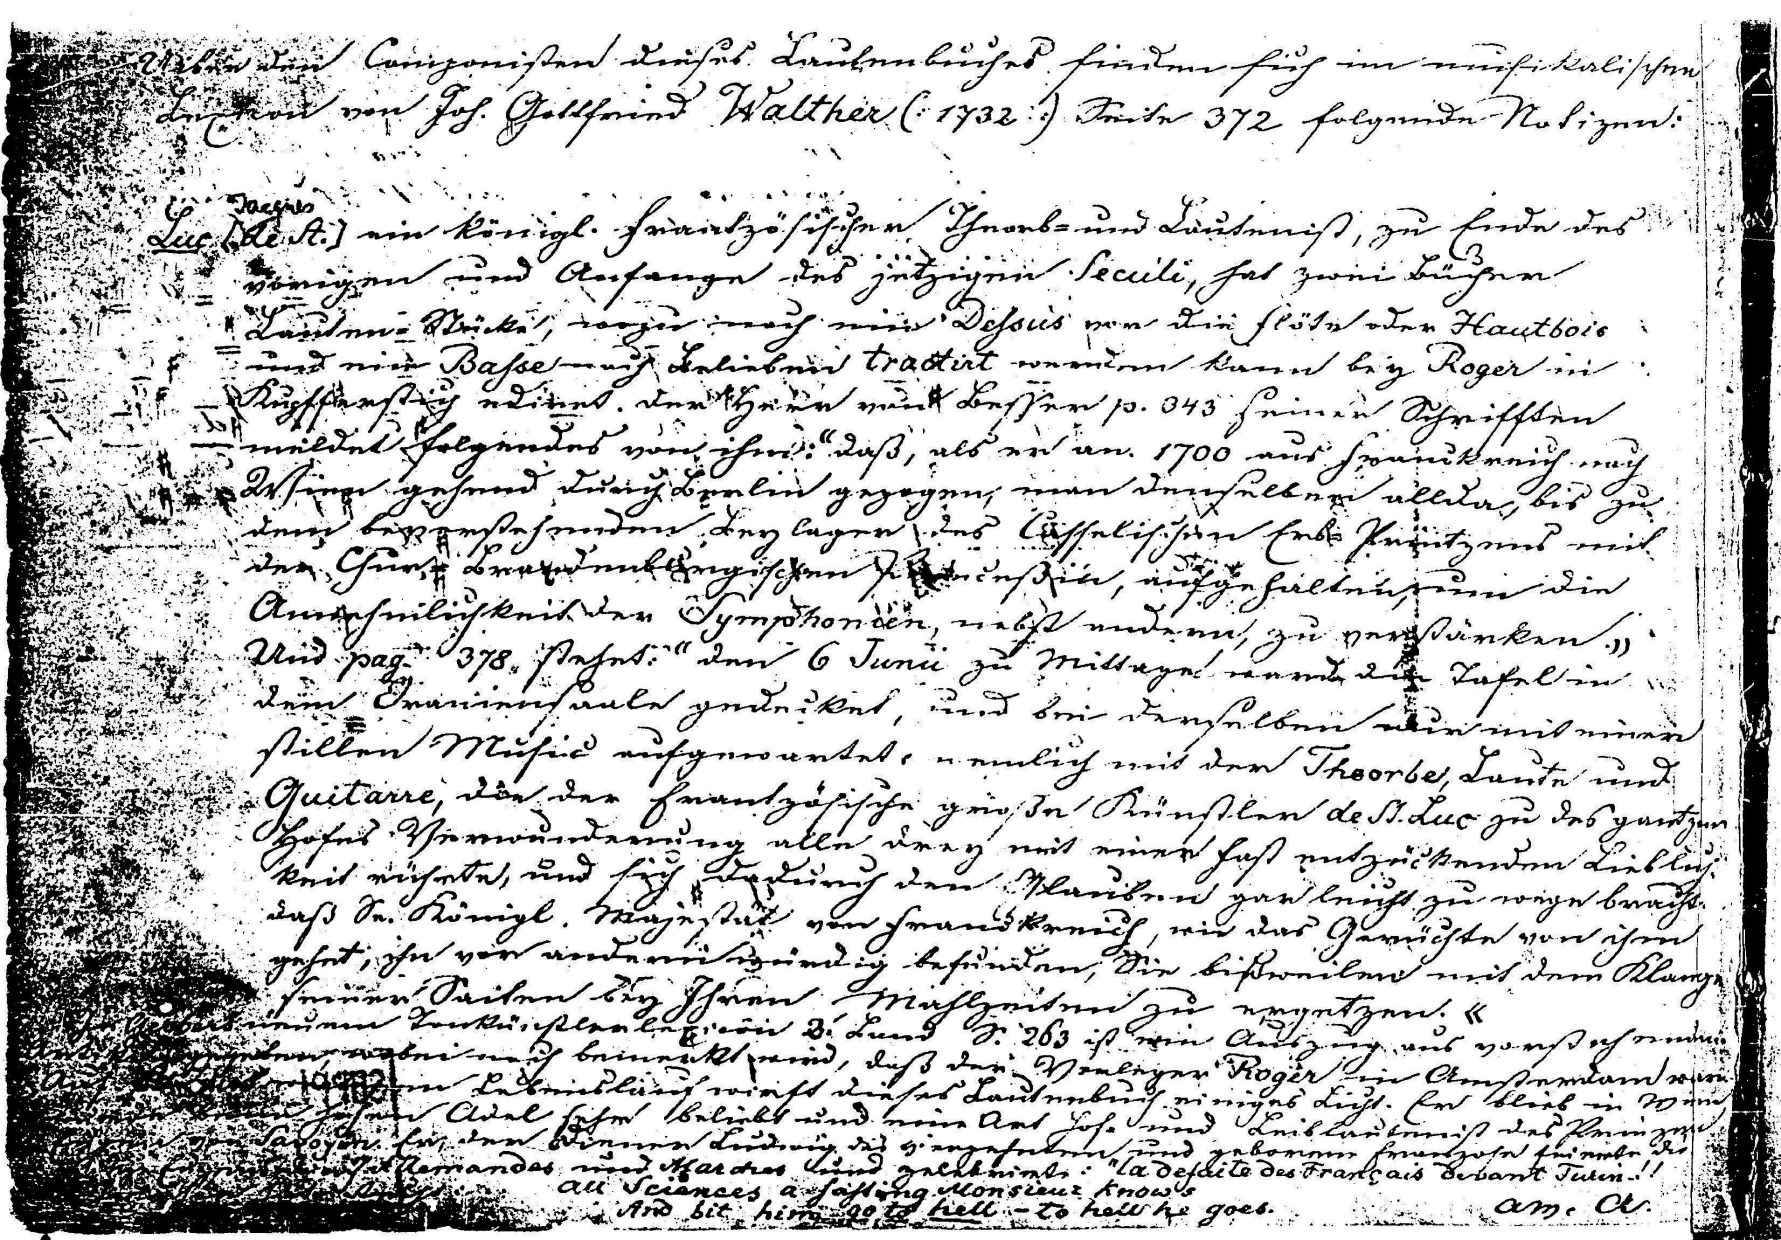 Ueber den Componisten dieses Lautenbuches finden sich im musikalischen
Lexicon von Joh. Gottfried Walther (: 1732 :) Seite 372 folgende Notizen:
Jacques
Luc [de St.] ein königl. Frantzösischer Theorb= und Lautenist, zu Ende des
vorigen und Anfange des jetzigen Seculi, hat zwei Bücher
Lauten=Stücke, wozu noch ein Dessus vor die Flöte oder Hautbois
und eine Basse nach Belieben tractirt werden kann bey Roger in
Kupfferstich ediret. Der Herr von Besser p. 343 seiner Schrifften
meldet folgendes von ihm: "daß, als er an. 1700 aus Franckreich nach
Wien gehend durch Berlin gezogen, man denselben allda, bis zu
dem bevorstehenden Beylager des Casselischen Erb=Printzens mit
der Chur=Brandenburgischen Princeßin, aufgehalten, um die
Annehmlichkeit der Symphonien, nebst andern, zu verstärken."
Und pag. 378 stehet: "den 6 Junii zu Mittage ward die Tafel in
dem Oraniensaale gedecket, und bei derselben nur mit einer
stillen Music aufgewartet, nemlich mit der Theorbe, Laute und
Guitarre, die der Frantzösische große Künstler de St. Luc zu des gantzen
Hofes Verwunderung alle drey mit einer fast entzückenden Lieblich-
keit rührte, und sich dadurch den Glauben gar leicht zu wege bracht
daß Se. Königl. Majestät von Franckreich, wie das Gerüchte von ihm
gehet, ihn vor andern würdig befunden, Sie bißweilen mit dem Klange
seiner Saiten bey Ihren Mahlzeiten zu ergetzen. «
In Gerbers neuem Tonkünstlerlexicon 3. Band S. 263 ist ein Auszug aus vorstehendem
gegeben, wobei noch bemerkt wird, daß der Verleger Roger in Amsterdam war.
Auf Lebenslauf wirft dieses Lautenbuch einiges Licht. Er blieb in Wien
hohen Adel sehr beliebt und eine Art Hof- und Leiblautenist des Prinzen
von Savoyen. Er, der Diener Ludwig des vierzehnten und geborene Franzose feierte die
Allemandes und Marches und zelebrierte: "la defaite des Français devant Turin!!
All Sciences a fasting Monsieur knows
And bit him go to hell – to hell he goes.